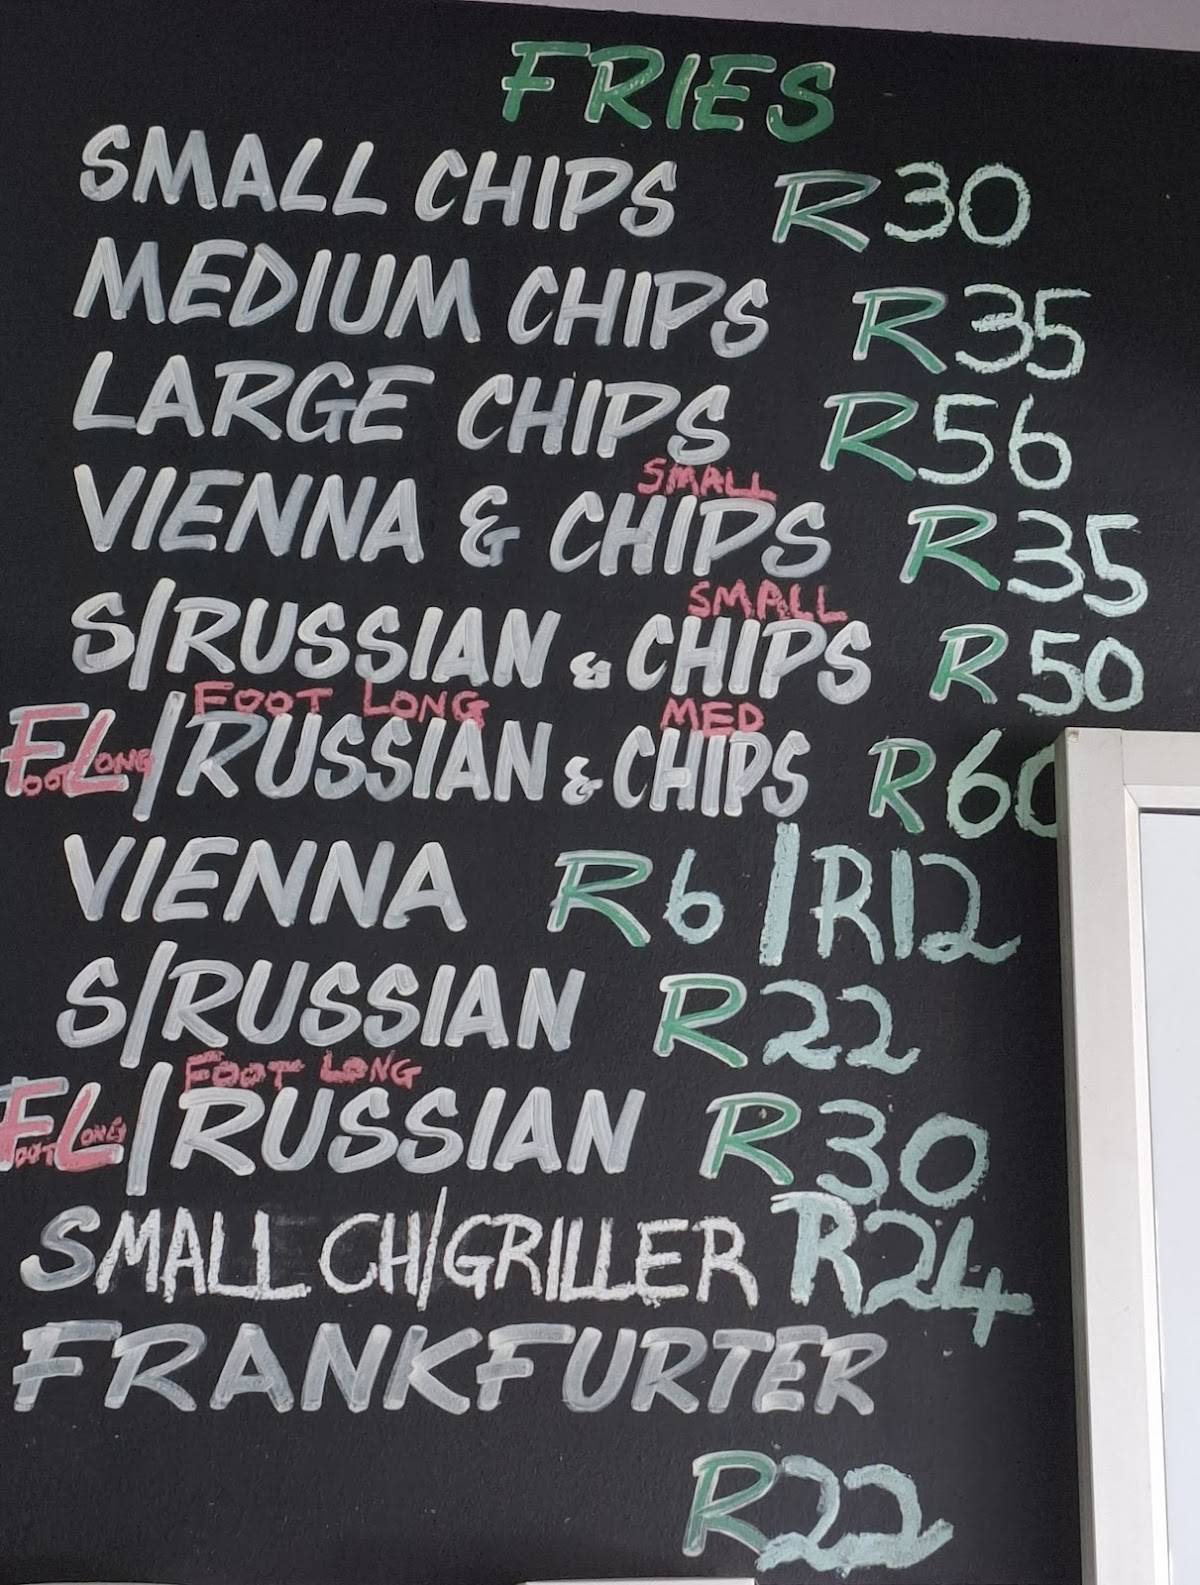 FRIES
SMALL CHIPS R30
MEDIUM CHIPS R35
LARGE CHIPS R56
SMALL
VIENNA & CHIPS R35
SMALL
S/RUSSIAN & CHIPS R50
FOOT LONG MED
FOOT LONG/RUSSIAN & CHIPS R60
VIENNA R6/R12
S/RUSSIAN R22
FOOT LONG
FOOT LONG/RUSSIAN R30
SMALL CH/GRILLER R24
FRANKFURTER
R22